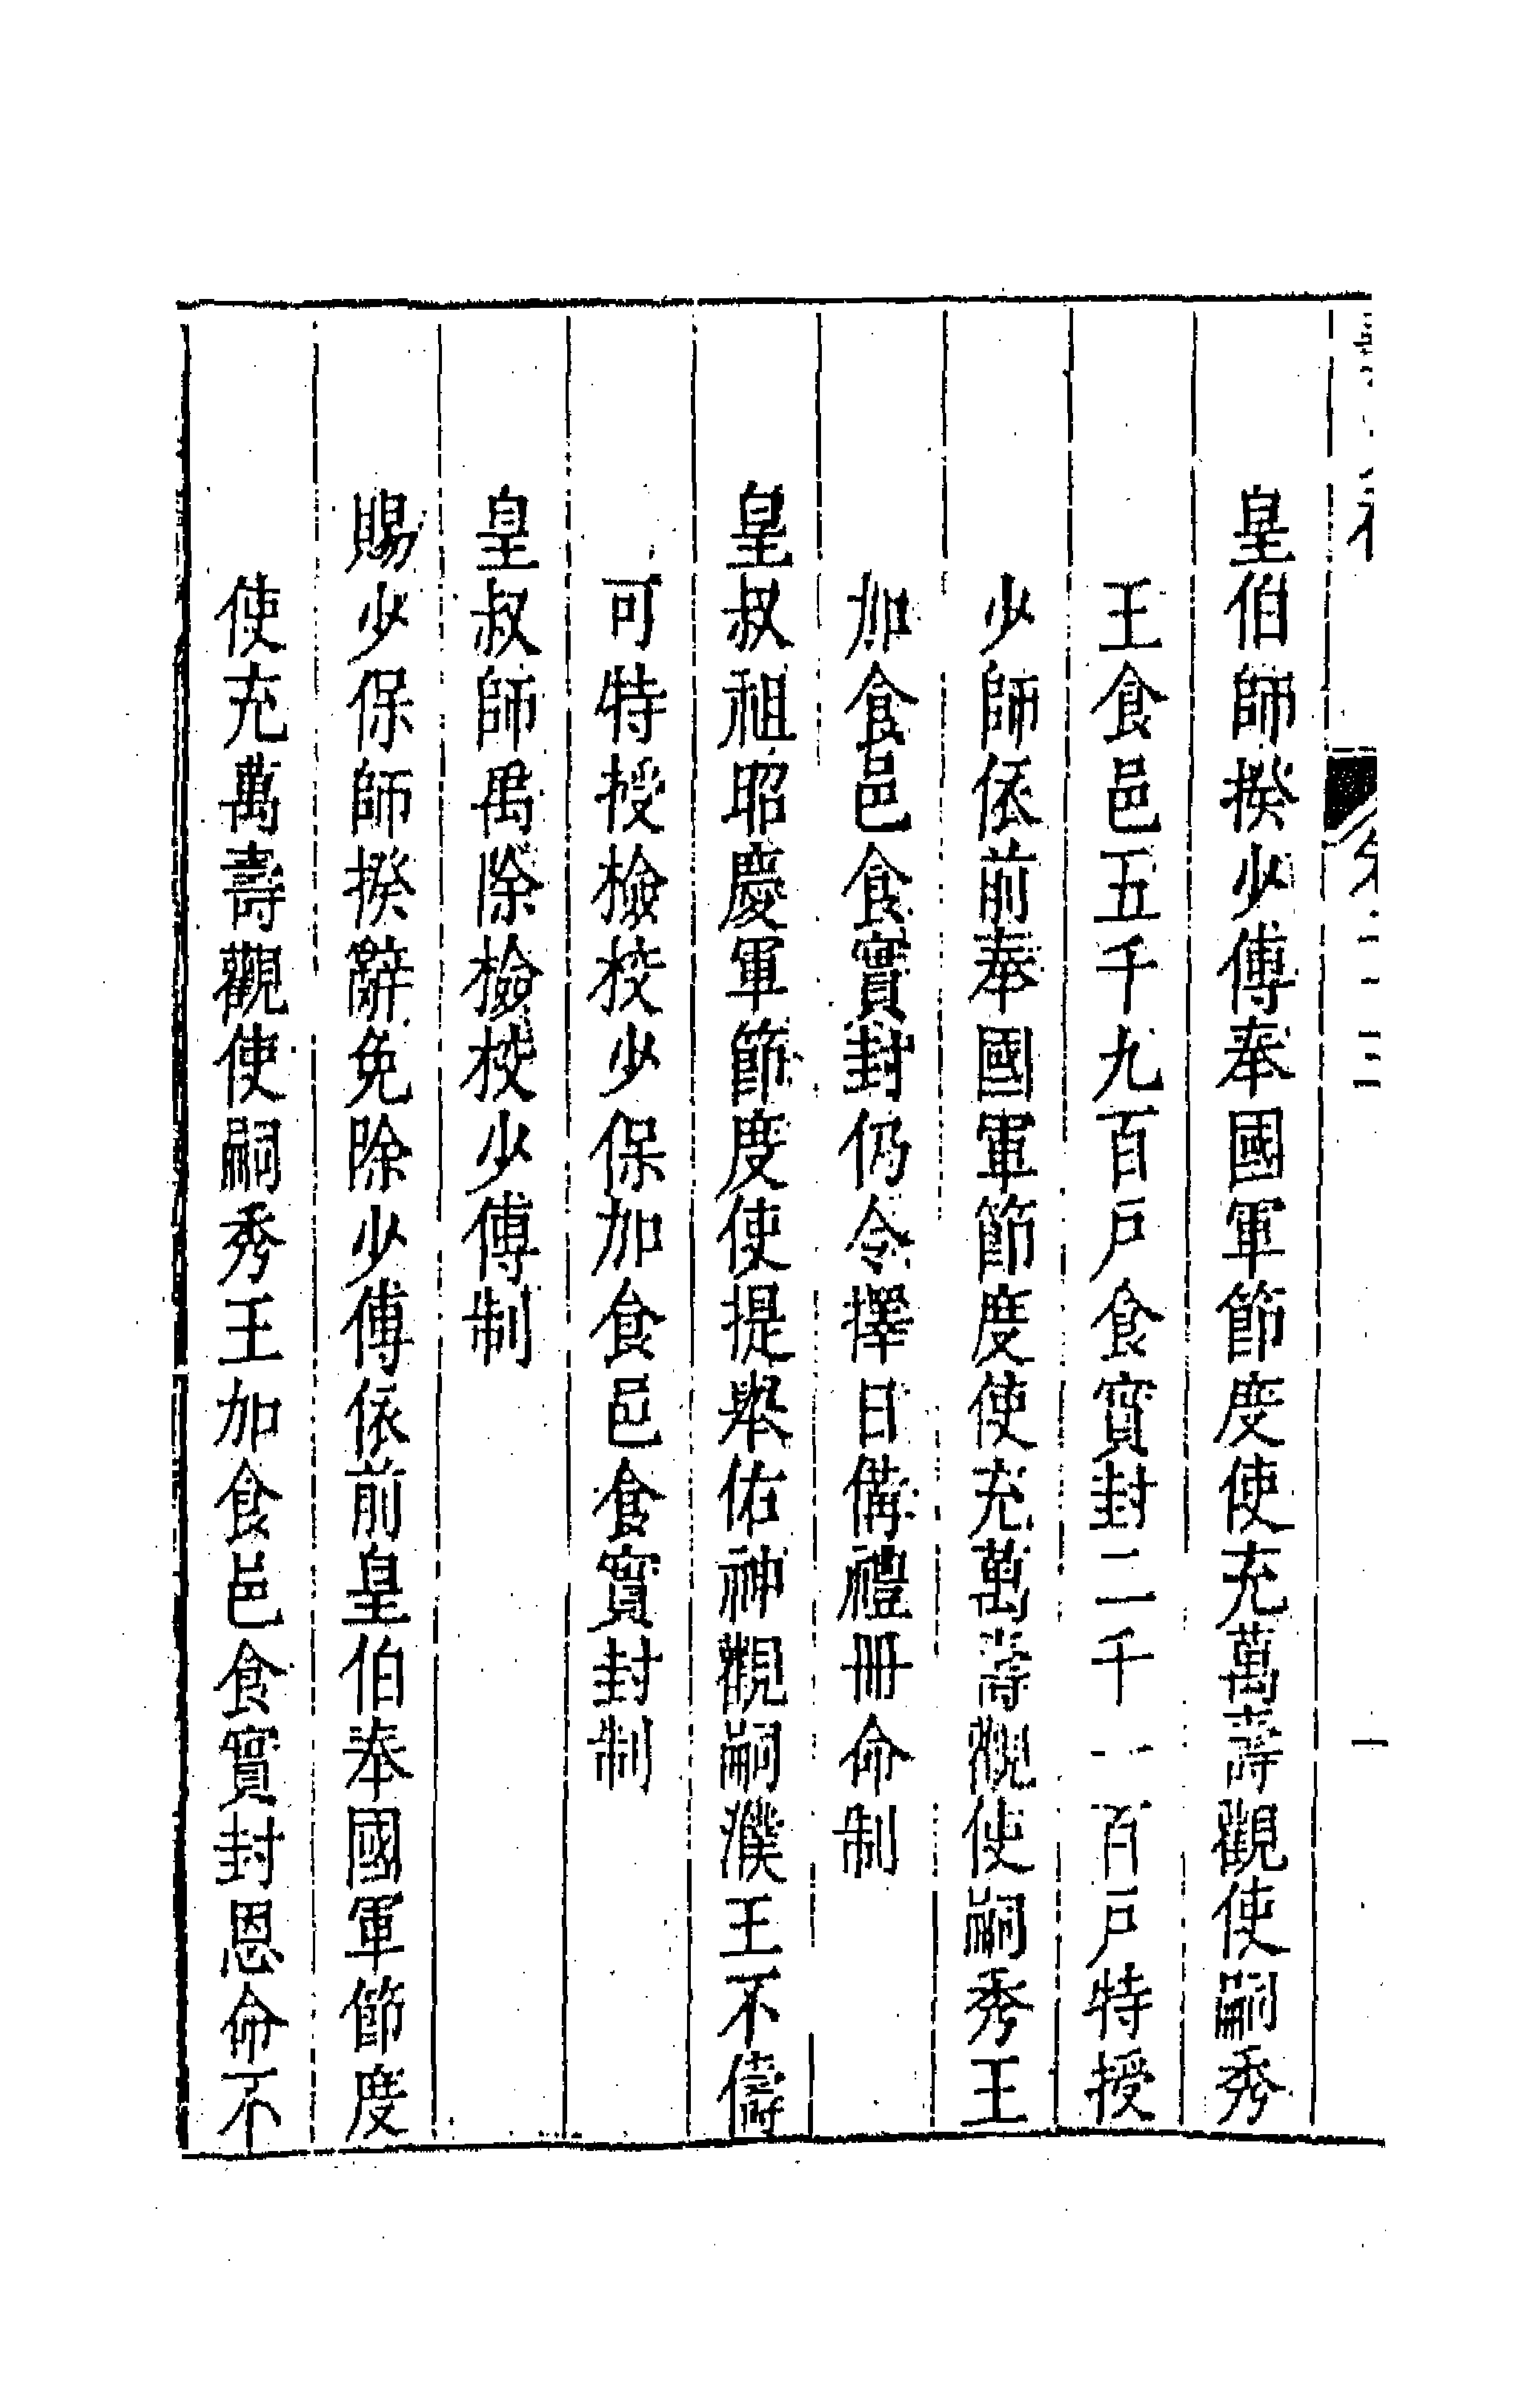 皇伯師揆少傅奉國軍節度使充萬壽觀使嗣秀
王食邑五千九百戶食實封二千一百戶特授
少師依前奉國軍節度使充萬壽觀使嗣秀王
加食邑食實封仍令擇日備禮冊命制
皇叔祖昭慶軍節度使提舉佑神觀嗣濮王不儔
可特授檢校少保加食邑食實封制
皇叔師禹除檢校少傅制
賜少保師揆辭免除少傅依前皇伯奉國軍節度
使充萬壽觀使嗣秀王加食邑食實封恩命不